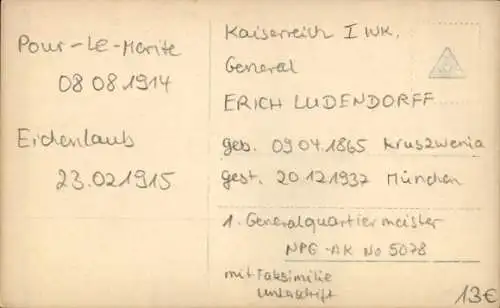 Pour-LE-Morite
08 08 1914
Eichenlaub
23.02.1915
Kaiserreich I WK.
General
ERICH LUDENDORFF
geb. 09 04.1865 Kruszwenia
gest. 20 12.1937 München
1. Generalquartiermeister
NPG-AK No 5078
mit Faksimilie
Unterschrift
13€